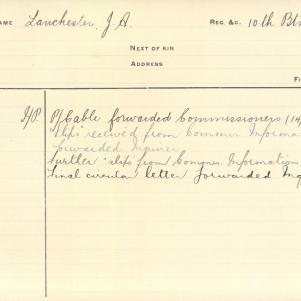 NAME Lanchester, J.A. REG. &C. 10th Btn
NEXT OF KIN
ADDRESS
FI
I/P. P/Cable forwarded Commissioners (14/
"slip" received from Commn. Informa
forwarded Inquirer
further "slip" from Commn. Information
Final circular letter forwarded Inq